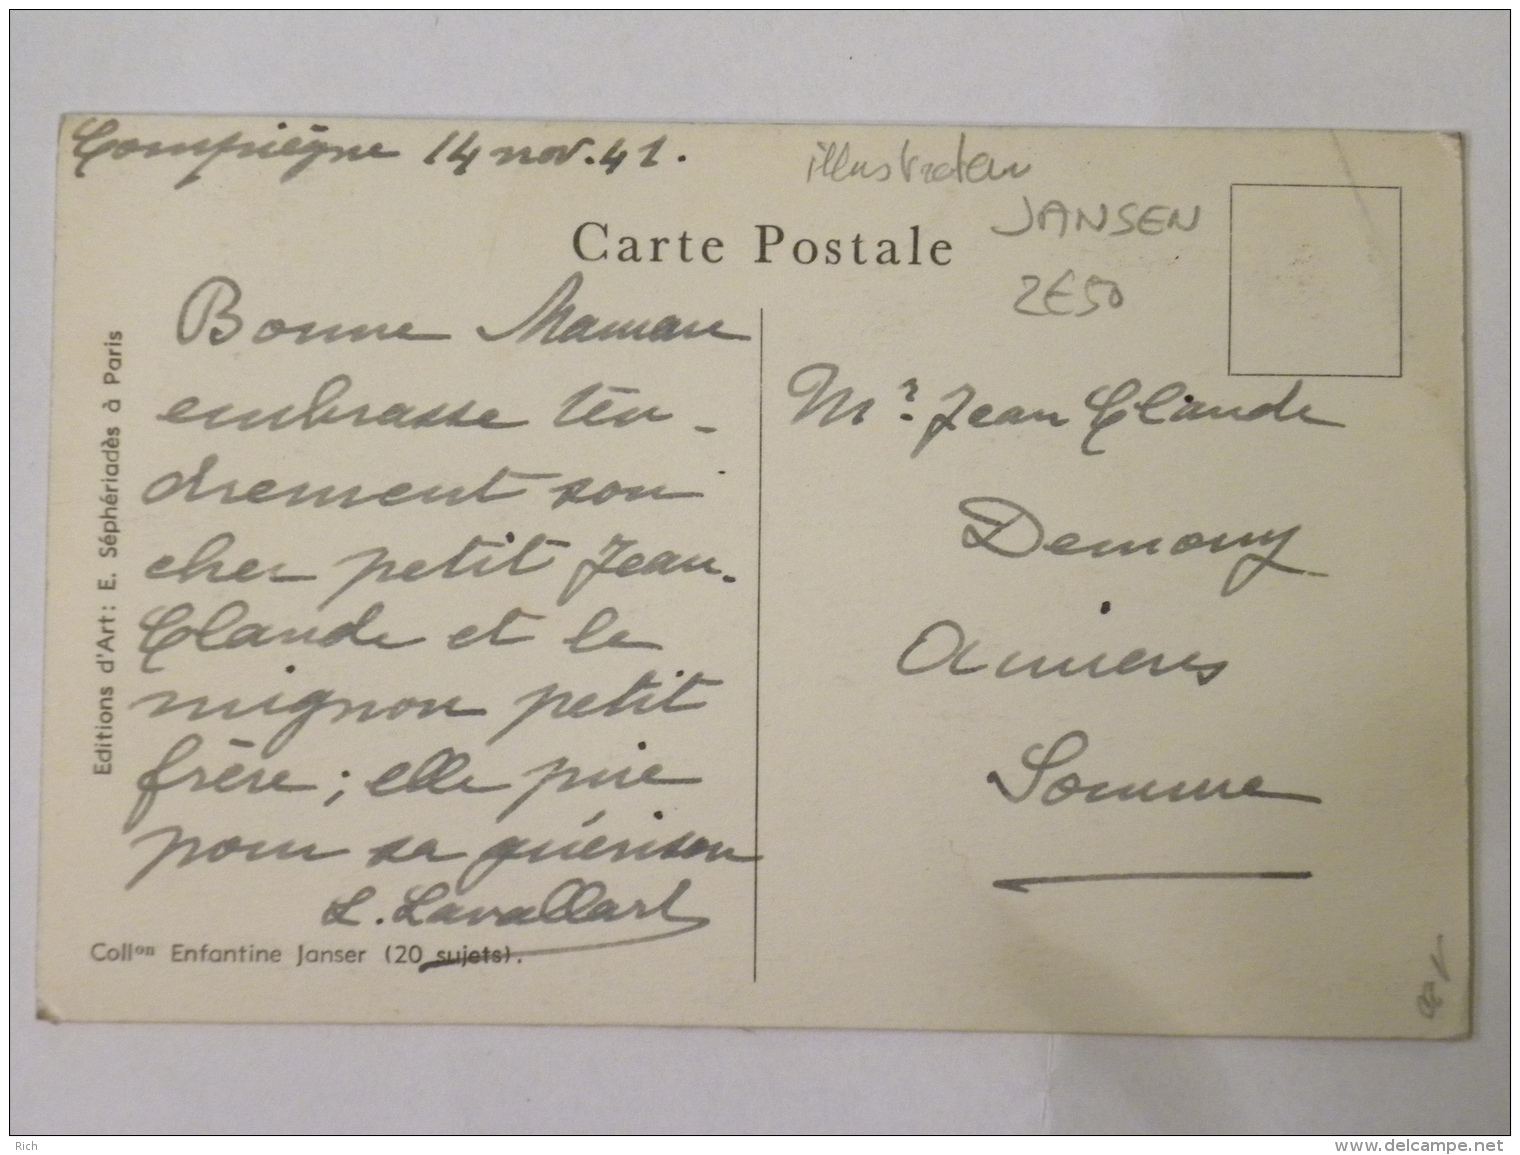 Compiègne 14 nov. 41.
illustrateur
JANSEN
2€50
Carte Postale
Bonne Maman
embrasse ten-
drement son
cher petit Jean-
Claude et le
mignon petit
frère ; elle prie
pour sa guérison
L. Lavallart
Mr. Jean Claude
Demouy
Amiens
Somme
Editions d'Art : E. Séphériadès à Paris
Collon Enfantine Janser (20 sujets).
Rich
www.delcampe.net